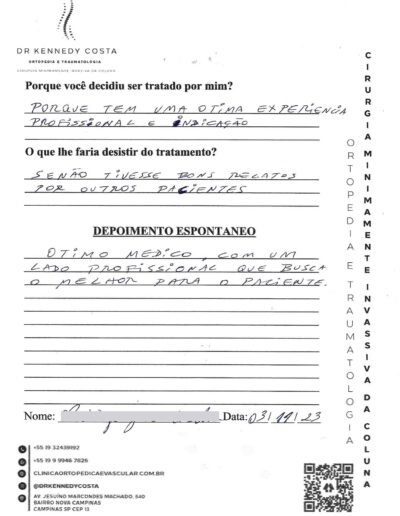 DR KENNEDY COSTA
ORTOPEDIA E TRAUMATOLOGIA
CIRURGIA MINIMAMENTE INVASIVA DA COLUNA
Porque você decidiu ser tratado por mim?
PORQUE TEM UMA OTIMA EXPERIENCIA
PROFISSIONAL E INDICAÇÃO
O que lhe faria desistir do tratamento?
SENÃO TIVESSE BONS RELATOS
POR OUTROS PACIENTES
DEPOIMENTO ESPONTANEO
OTIMO MEDICO, COM UM
LADO PROFISSIONAL QUE BUSCA
O MELHOR PARA O PACIENTE.
Nome: Data: 03/11/23
+55 19 32439192
+55 19 9 9946 7826
CLINICAORTOPEDICAEVASCULAR.COM.BR
@DRKENNEDYCOSTA
AV. JESUÍNO MARCONDES MACHADO, 540
BAIRRO NOVA CAMPINAS
CAMPINAS SP CEP 13
ORTOPEDIA E TRAUMATOLOGIA
CIRURGIA MINIMAMENTE INVASSIVA DA COLUNA